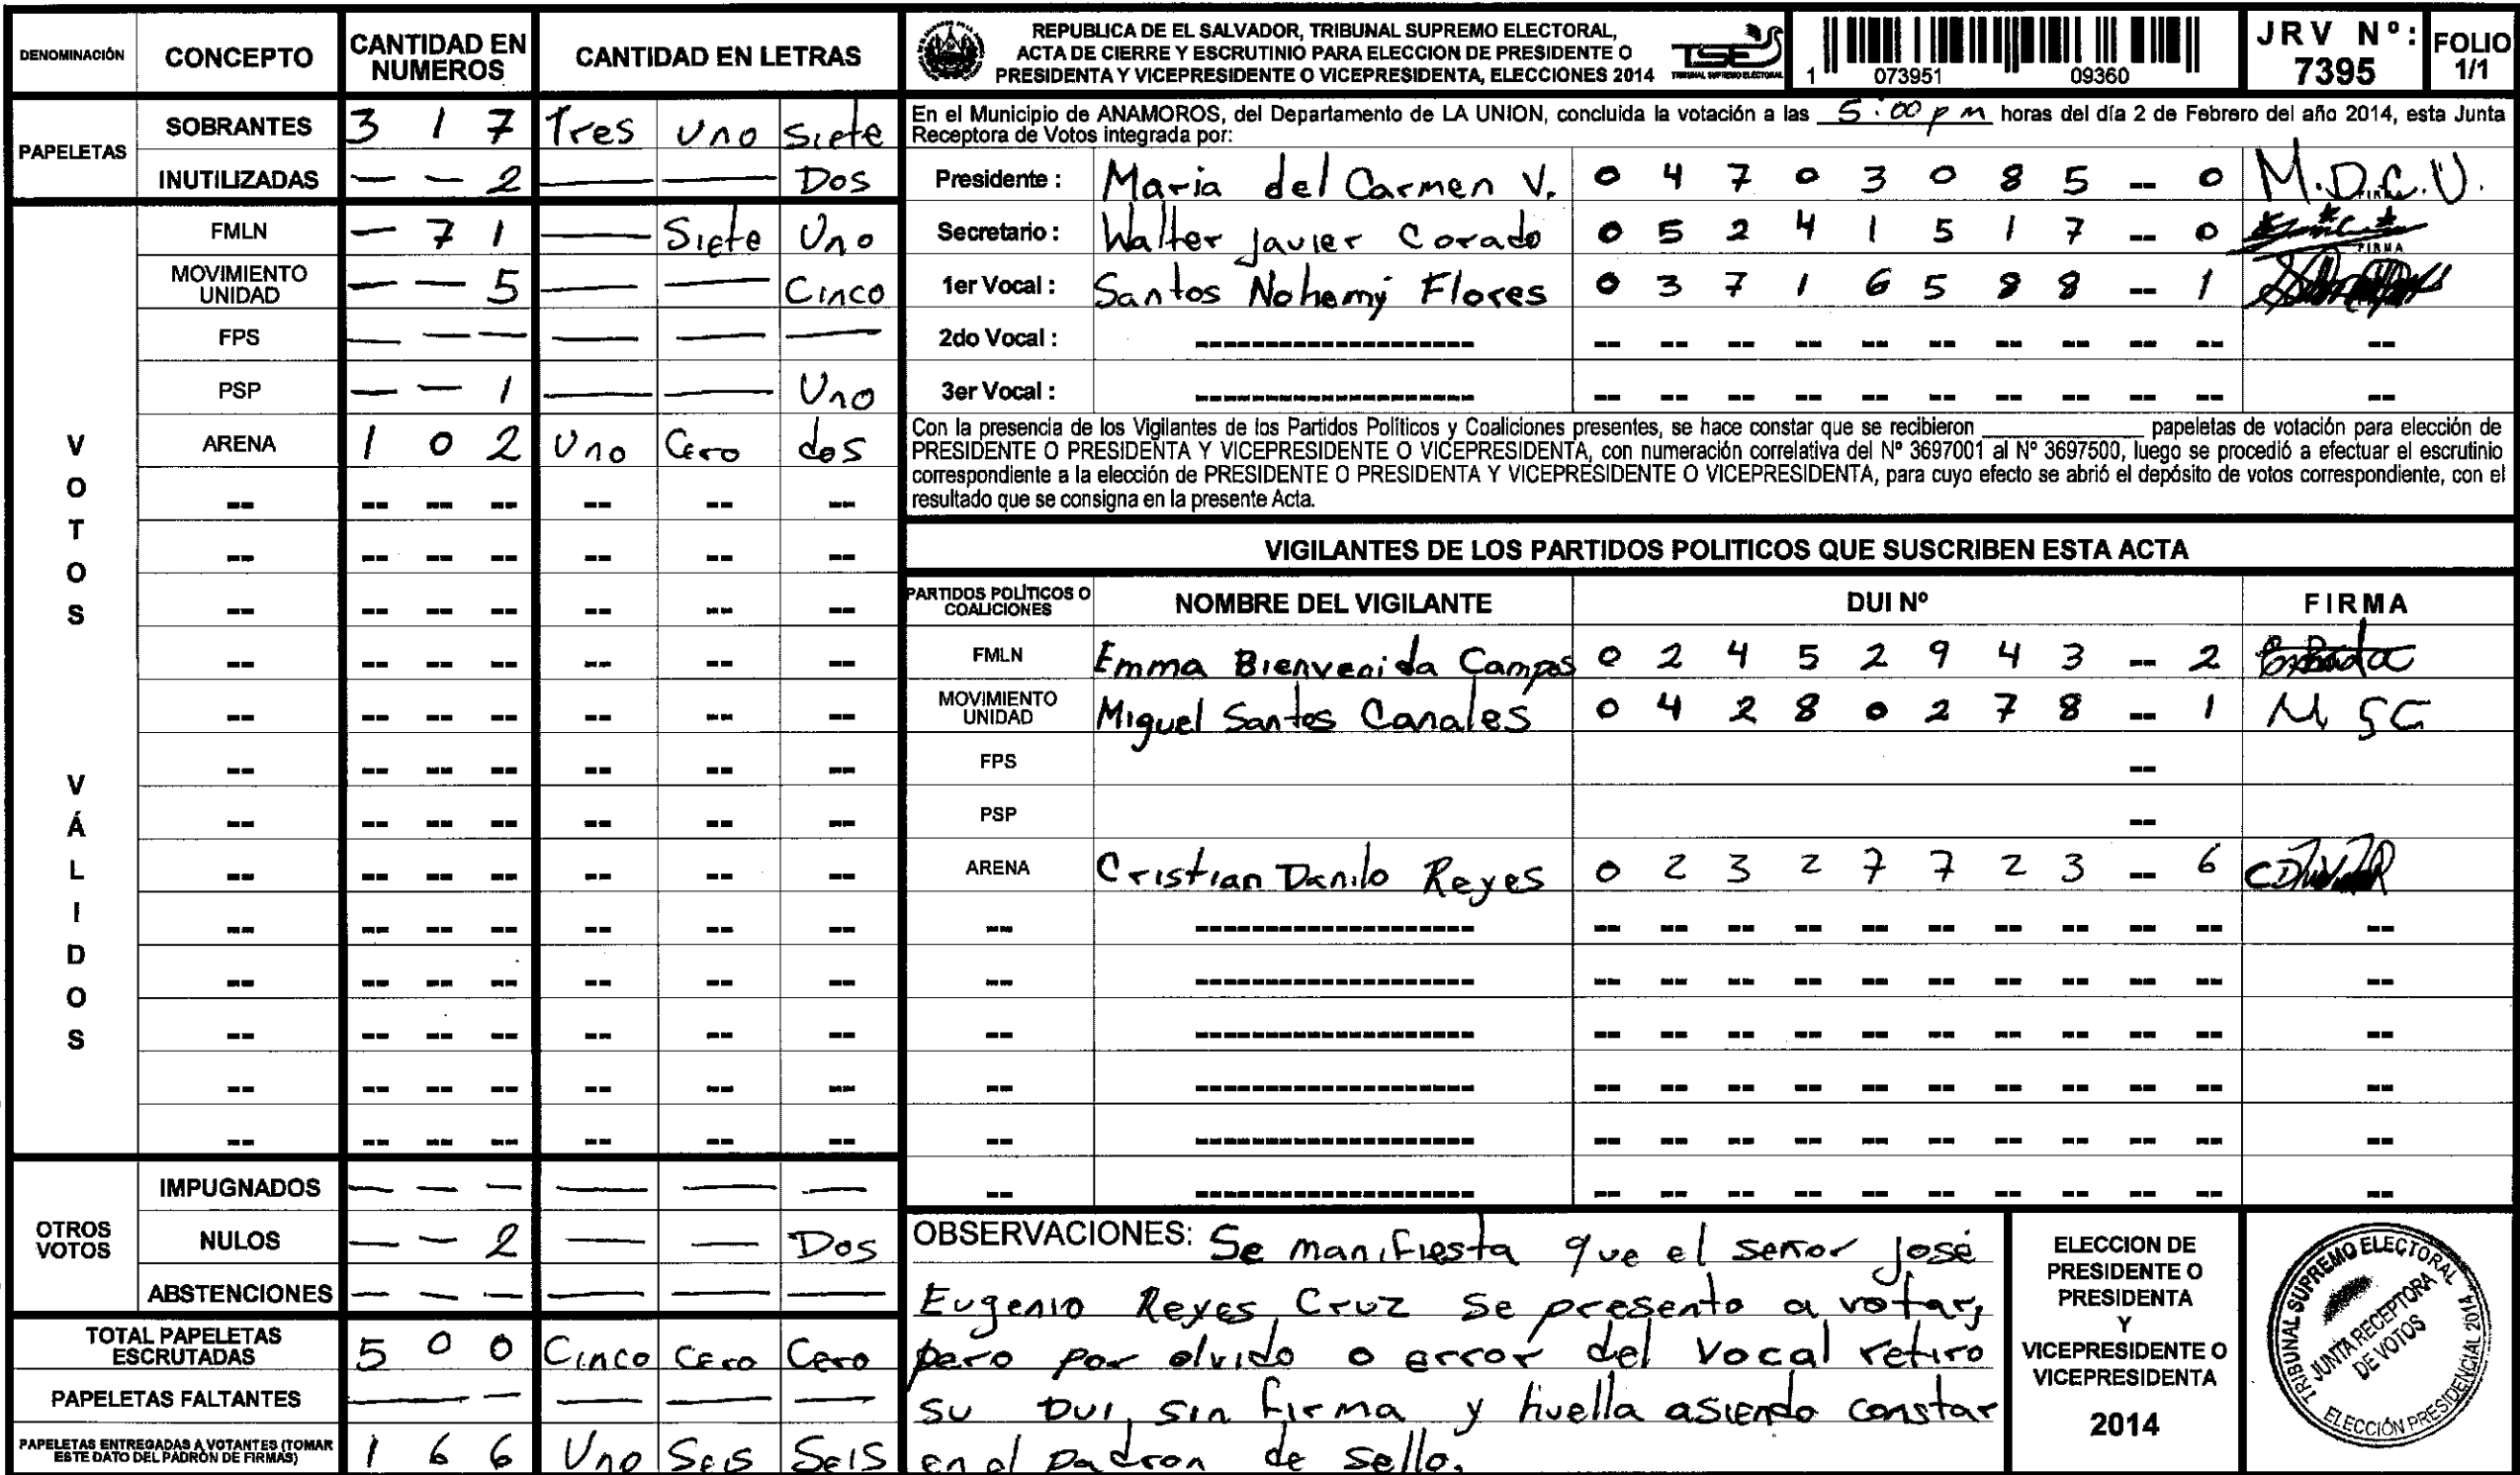 DENOMINACIÓN CONCEPTO CANTIDAD EN NUMEROS CANTIDAD EN LETRAS
PAPELETAS
SOBRANTES 3 1 7 Tres Uno Siete
INUTILIZADAS — — 2 — — Dos
VOTOS VÁLIDOS
FMLN — 7 1 — Siete Uno
MOVIMIENTO UNIDAD — — 5 — — Cinco
FPS — — — — — —
PSP — — 1 — — Uno
ARENA 1 0 2 Uno Cero dos
OTROS VOTOS
IMPUGNADOS — — — — — —
NULOS — — 2 — — Dos
ABSTENCIONES — — — — — —
TOTAL PAPELETAS ESCRUTADAS 5 0 0 Cinco Cero Cero
PAPELETAS FALTANTES — — — — —
PAPELETAS ENTREGADAS A VOTANTES (TOMAR ESTE DATO DEL PADRÓN DE FIRMAS) 1 6 6 Uno Seis Seis
REPUBLICA DE EL SALVADOR, TRIBUNAL SUPREMO ELECTORAL,
ACTA DE CIERRE Y ESCRUTINIO PARA ELECCION DE PRESIDENTE O
PRESIDENTA Y VICEPRESIDENTE O VICEPRESIDENTA, ELECCIONES 2014
TSE
TRIBUNAL SUPREMO ELECTORAL
1 073951 09360
JRV Nº: 7395
FOLIO 1/1
En el Municipio de ANAMOROS, del Departamento de LA UNION, concluida la votación a las 5:00 pm horas del día 2 de Febrero del año 2014, esta Junta
Receptora de Votos integrada por:
Presidente : Maria del Carmen V. 0 4 7 0 3 0 8 5 -- 0 M.D.C.V.
Secretario : Walter Javier Corado 0 5 2 4 1 5 1 7 -- 0
FIRMA
1er Vocal : Santos Nohemy Flores 0 3 7 1 6 5 8 8 -- 1
2do Vocal :
3er Vocal :
Con la presencia de los Vigilantes de los Partidos Políticos y Coaliciones presentes, se hace constar que se recibieron ____ papeletas de votación para elección de
PRESIDENTE O PRESIDENTA Y VICEPRESIDENTE O VICEPRESIDENTA, con numeración correlativa del Nº 3697001 al Nº 3697500, luego se procedió a efectuar el escrutinio
correspondiente a la elección de PRESIDENTE O PRESIDENTA Y VICEPRESIDENTE O VICEPRESIDENTA, para cuyo efecto se abrió el depósito de votos correspondiente, con el
resultado que se consigna en la presente Acta.
VIGILANTES DE LOS PARTIDOS POLITICOS QUE SUSCRIBEN ESTA ACTA
PARTIDOS POLÍTICOS O COALICIONES NOMBRE DEL VIGILANTE DUI Nº FIRMA
FMLN Emma Bienvenida Campos 0 2 4 5 2 9 4 3 -- 2
MOVIMIENTO UNIDAD Miguel Santos Canales 0 4 2 8 0 2 7 8 -- 1 M SC
FPS --
PSP --
ARENA Cristian Danilo Reyes 0 2 3 2 7 7 2 3 -- 6
OBSERVACIONES: Se manifiesta que el señor José
Eugenio Reyes Cruz se presento a votar,
pero por olvido o error del Vocal retiro
su DUI, sin firma y huella asiendo constar
en el padron de sello.
ELECCION DE
PRESIDENTE O
PRESIDENTA
Y
VICEPRESIDENTE O
VICEPRESIDENTA
2014
TRIBUNAL SUPREMO ELECTORAL
JUNTA RECEPTORA
DE VOTOS
ELECCIÓN PRESIDENCIAL 2014